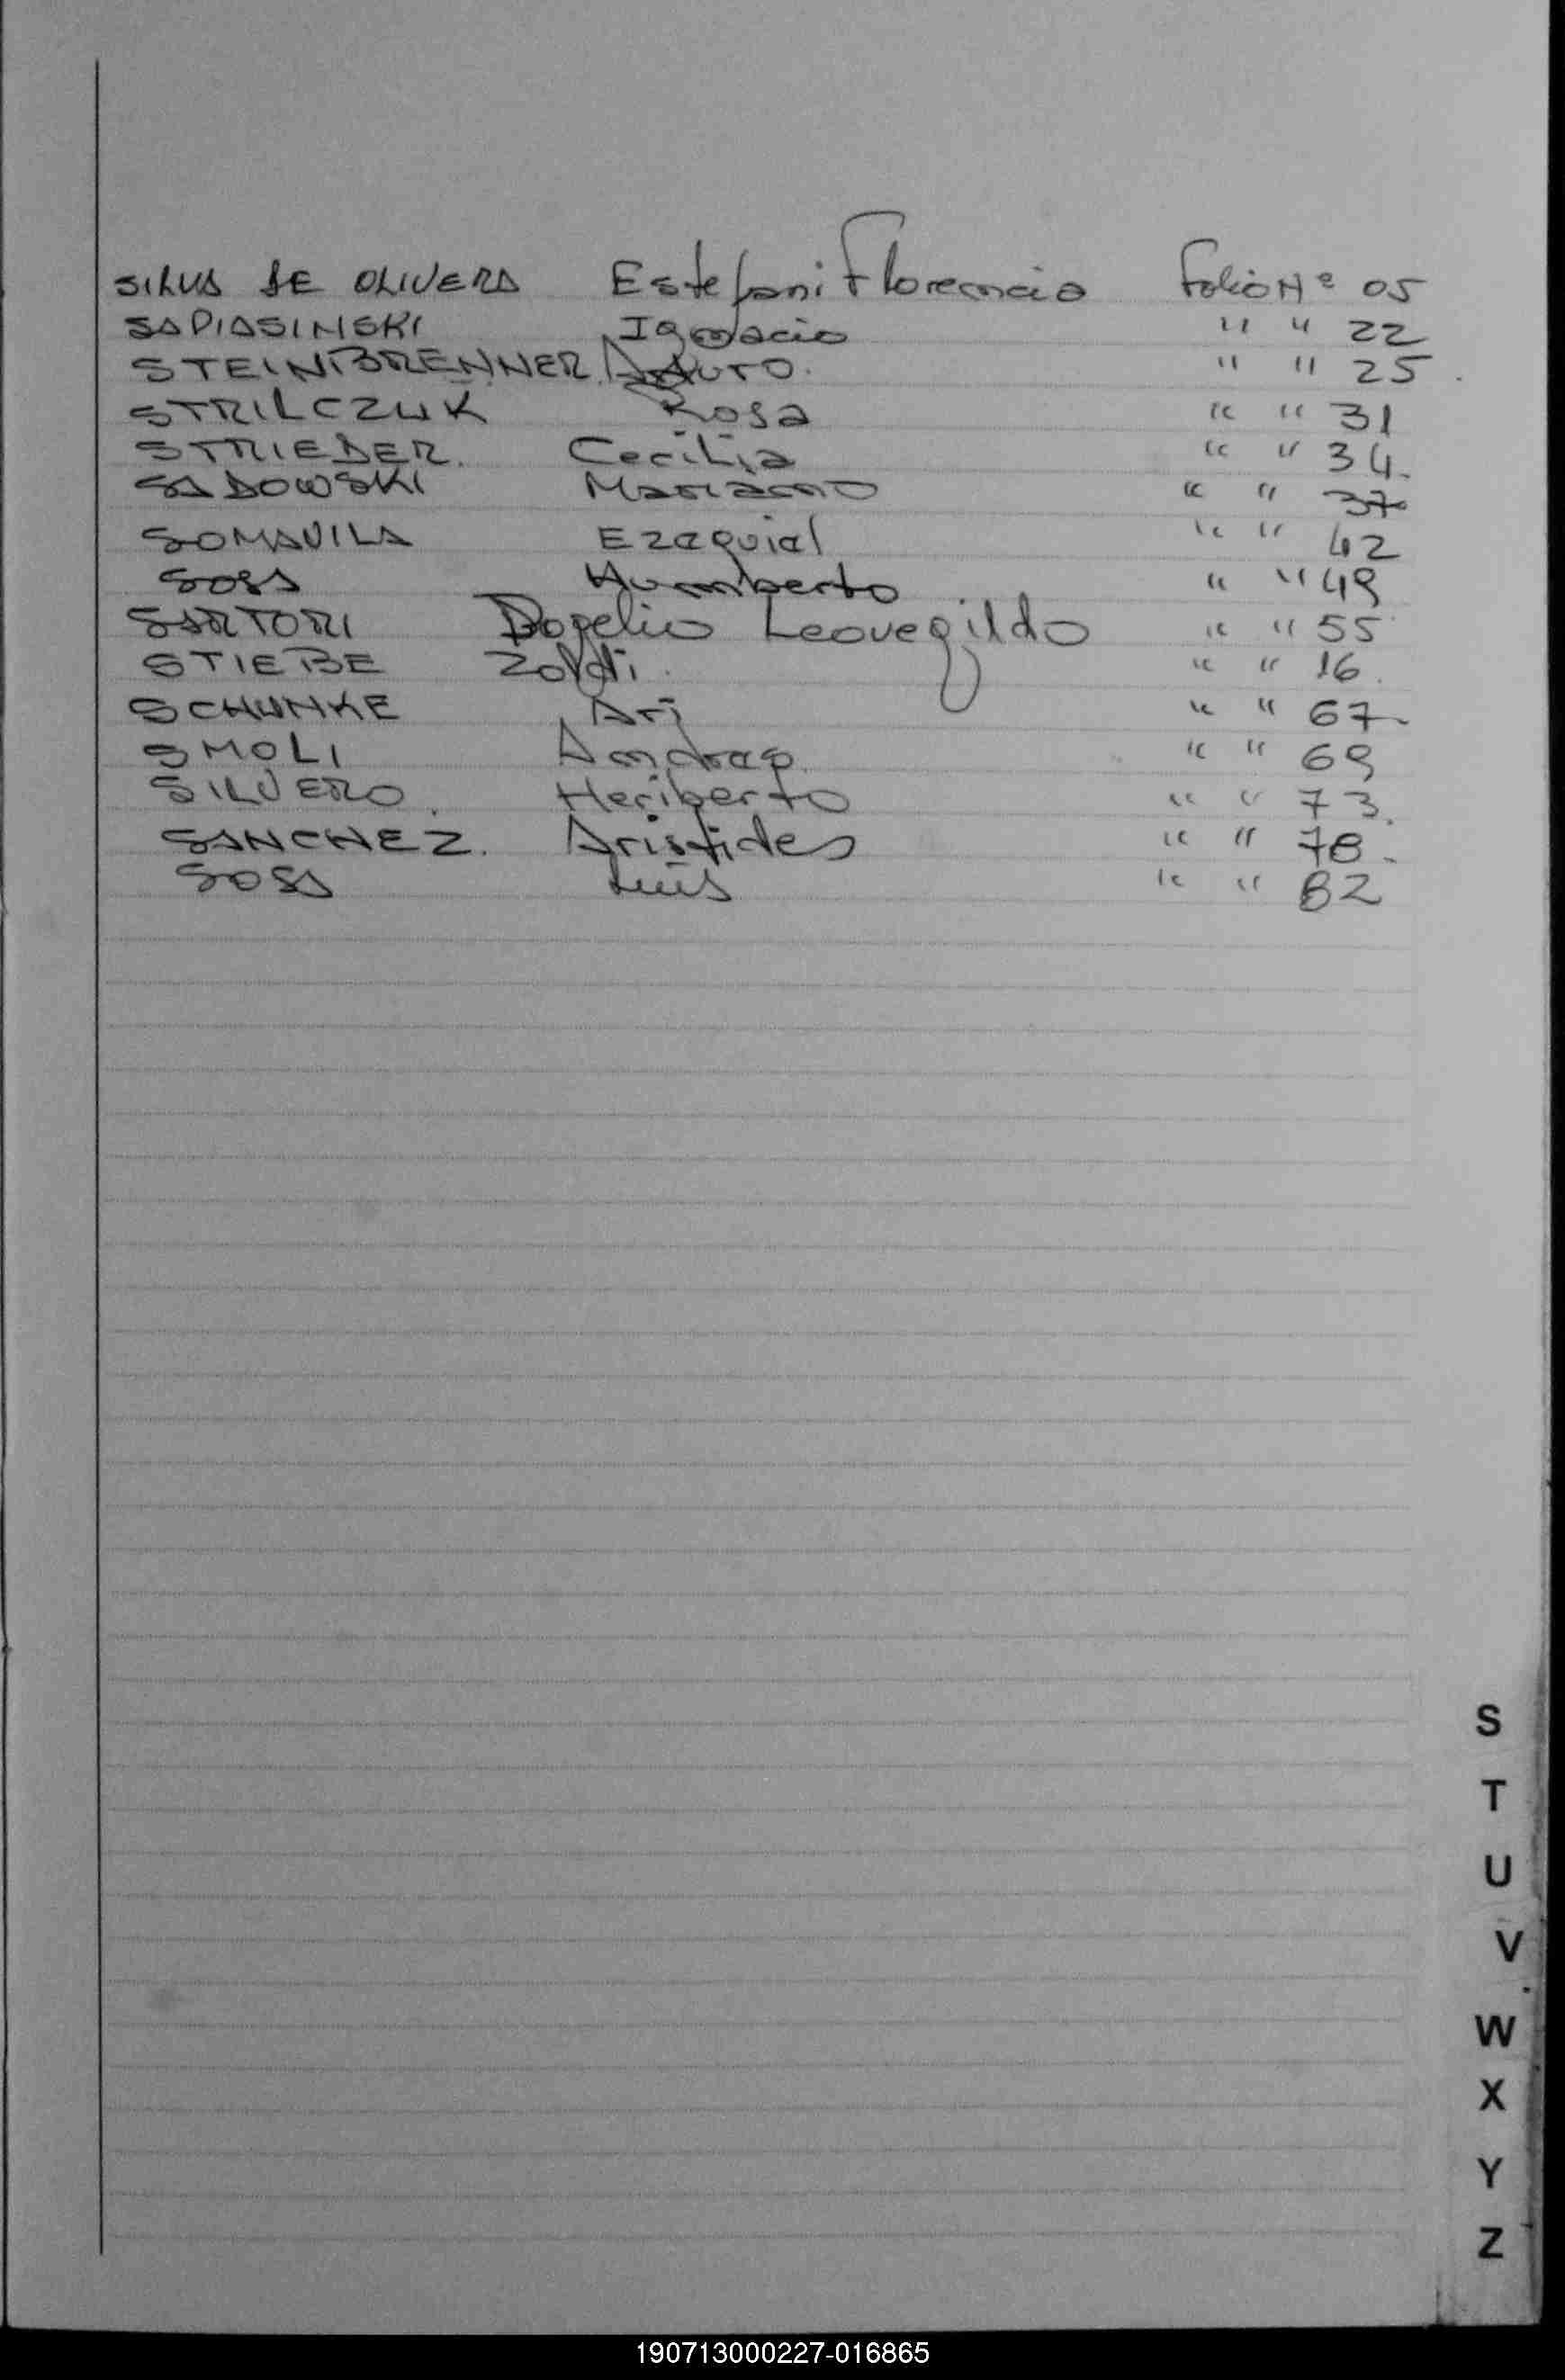 SILVA DE OLIVERA Estefani Florencio Folio Nº 05
SAPIASINSKI Ignacio " " 22
STEINBRENNER Arturo. " " 25.
STRILCZUK Rosa " " 31
STRIEDER. Cecilia " " 34.
SADOWSKI Mariano " " 37
SOMAVILA Ezequiel " " 42
SOSA Humberto " " 49
SARTORI Rogelio Leovegildo " " 55
STIEBE Zoldi. " " 16.
SCHUNKE Ari " " 67
SMOLI Andres " " 69
SILVERO. Heriberto " " 73.
SANCHEZ. Aristides " " 78.
SOSA Luis " " 82
S
T
U
V
W
X
Y
Z
190713000227-016865